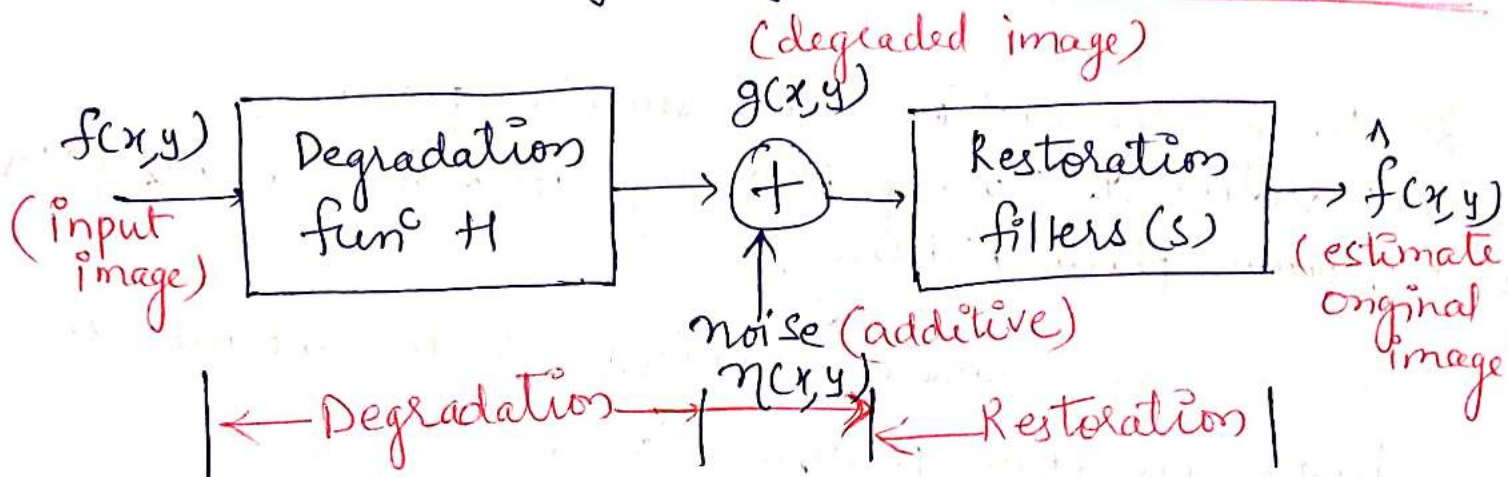 (degraded image)
g(x,y)
f(x,y)
(input image)
Degradation
func H
+
Restoration
filters (s)
^
f(x,y)
(estimate
original
image
noise (additive)
η(x,y)
Degradation
Restoration